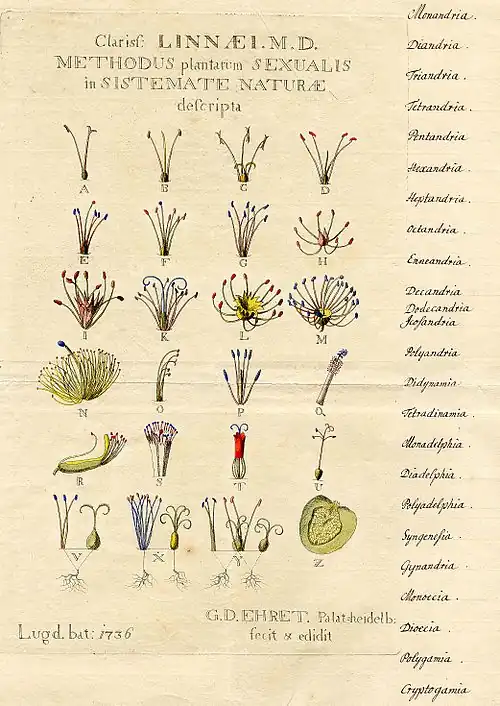 Clariſs: LINNÆI.M.D.
METHODUS plantarum SEXUALIS
in SISTEMATE NATURÆ
deſcripta
A B C D
E F G H
I K L M
N O P Q
R S T U
V X Y Z
Lugd. bat: 1736
G.D. EHRET. Palat-heidelb:
fecit & edidit
Monandria.
Diandria.
Triandria.
Tetrandria.
Pentandria
Hexandria.
Heptandria.
Octandria.
Enneandria.
Decandria
Dodecandria
Icosandria.
Polyandria.
Didynamia.
Tetradinamia.
Monadelphia.
Diadelphia.
Polyadelphia.
Syngenesia.
Gynandria.
Monoecia.
Dioecia.
Polygamia.
Cryptogamia